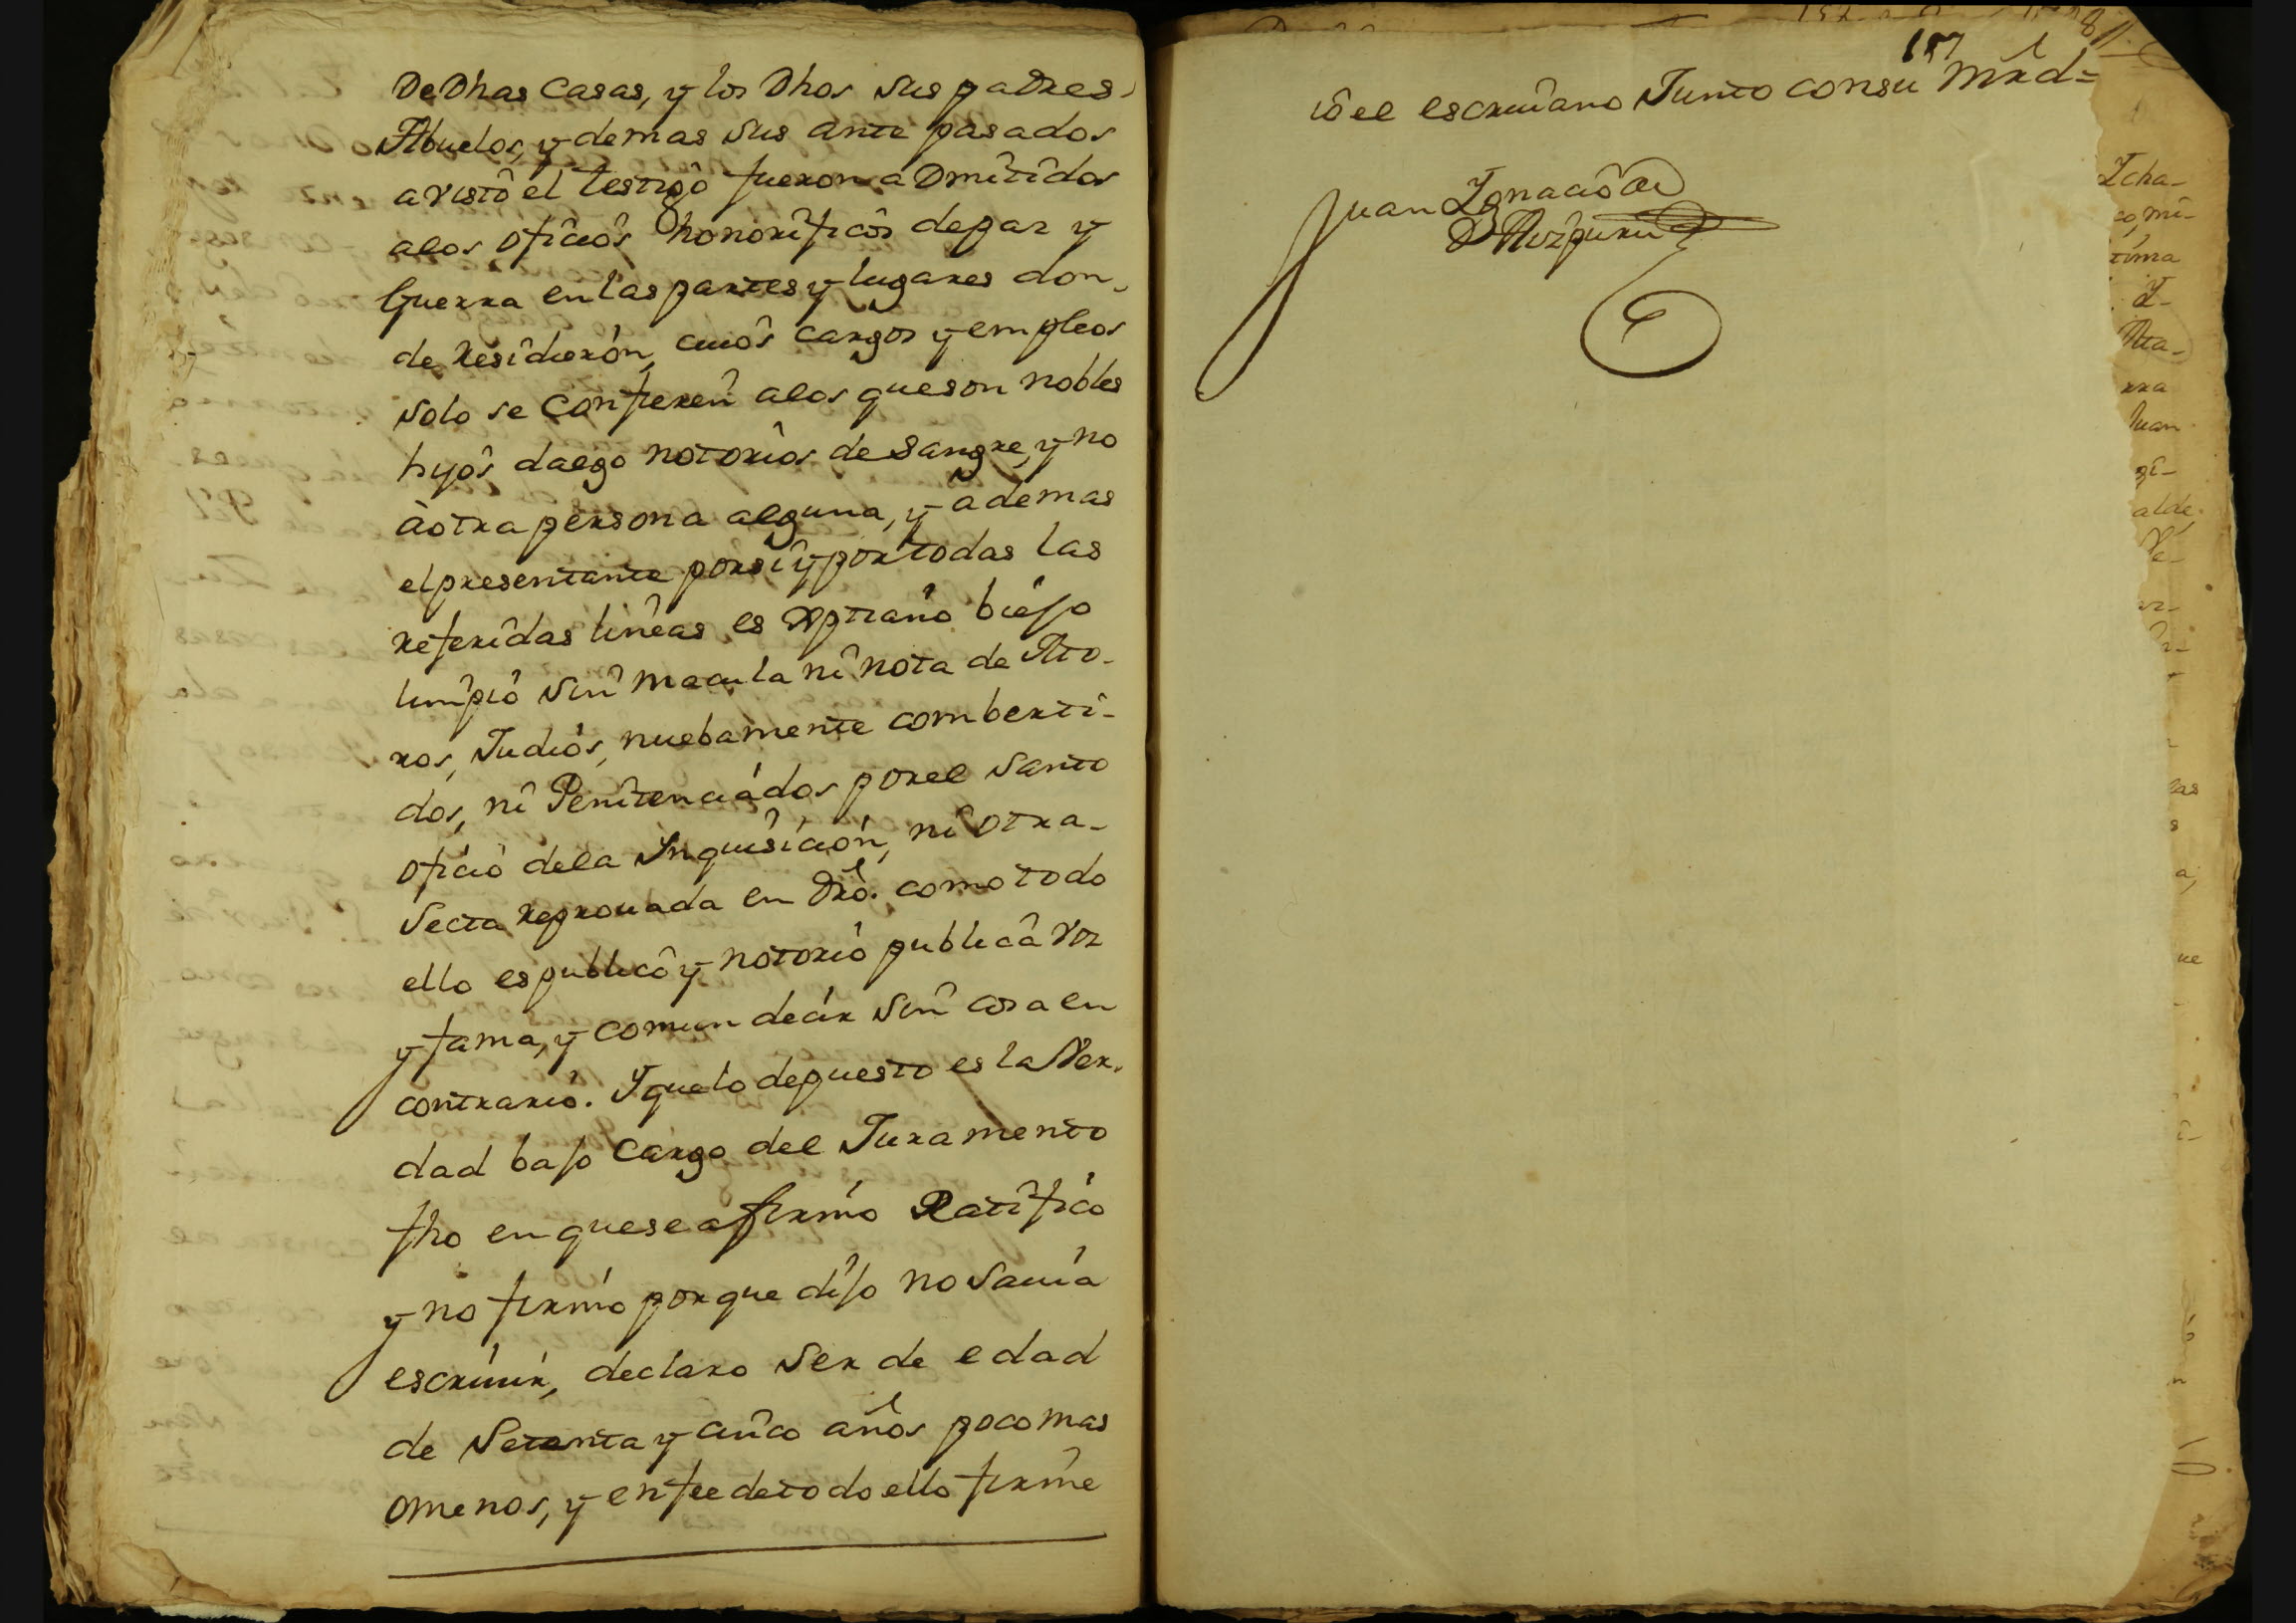 De Dhas Casas, y los Dhos sus padres
Abuelos, y demas sus ante pasados
a visto el testigo fueron aDmitidos
alos oficios honorificos de paz y
Guerra en las partes y lugares don-
de residieron, cuios cargos y empleos
solo se confieren alos que son nobles
hijos dalgo notorios de sangre, y no
à otra persona alguna, y ademas
el presentante por si y por todas las
referidas lineas es Xptiano biejo
limpio sin macula ni nota de Mo-
ros, Judios, nuebamente comberti-
dos, ni Penitenciados por el santo
oficio dela Inquisicion, ni otra-
secta reprouada en Dro. como todo
ello es publico y notorio publica voz
y fama, y comun decir sin cosa en
contrario. Y que lo depuesto es la Ver-
dad bajo cargo del Juramento
fho en que se afirmo Ratifico
y no firmo porque dijo no sauia
escriuir, declaro ser de edad
de setenta y cinco años poco mas
o menos, y en fee de todo ello firme
157
io el escriuano Junto con su Mrd=
Juan Ignacio de
Aizpuru
Icha-
co, mi-
tima
Y-
Ma-
rra
Juan
gi-
alde